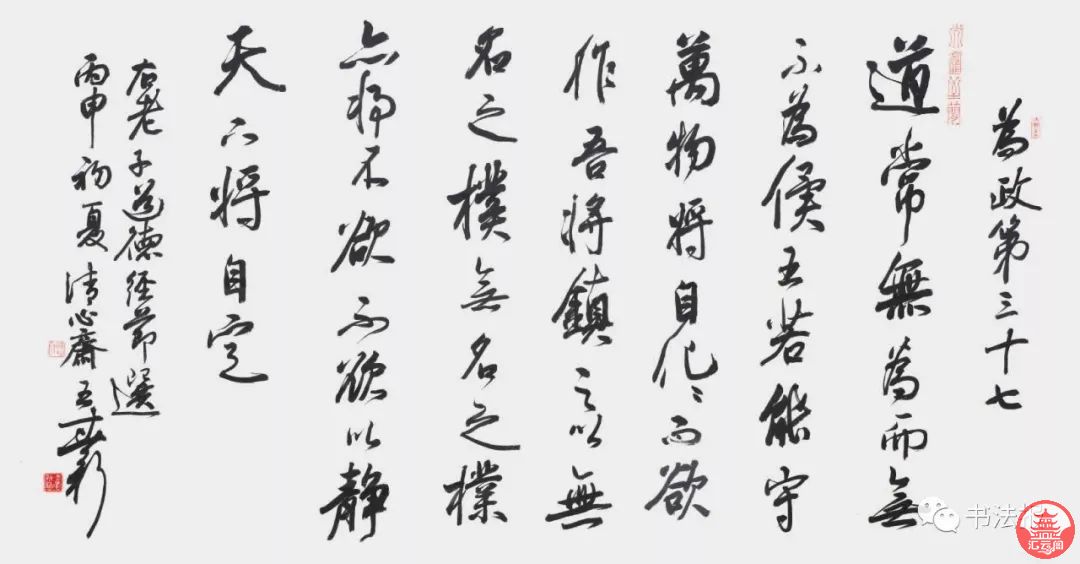 為政第三十七
道常無為而無
不為侯王若能守
萬物將自化〻而欲
作吾將鎮之以無
名之樸無名之樸
亦將不欲不欲以静
天下將自定
右老子道德經節選
丙申初夏清心齋王
书法
汇云阁